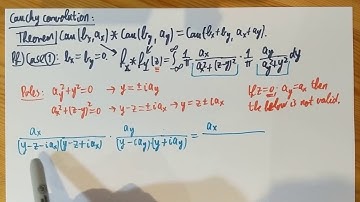 Cauchy Convolution:
Theorem | Cau(bx, ax) * Cau(by, ay) = Cau(bx+by, ax+ay).
Pf.) Case(1): bx=by=0. fx * fy (z) = ∫_{-∞}^{∞} 1/π ax/(ax²+(z-y)²) · 1/π ay/(ay²+y²) dy
Poles: ay²+y²=0 → y=±iay
ax²+(z-y)²=0 → y-z=±iax → y=z±iax
If z=0, ay=ax then
the below is not valid.
ax/((y-z-iax)(y-z+iax)) · ay/((y-iay)(y+iay)) = ax